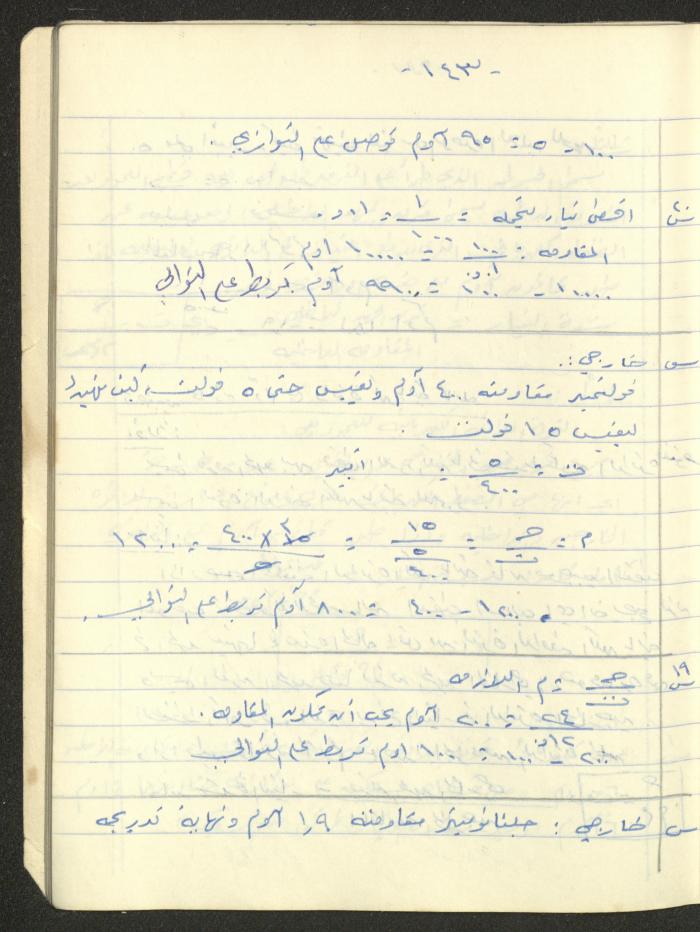 - ١٤٣ -
١٠٠ - ٥ = ٩٥ آوم توصل على التوازي.
اقصى تيار يتحمله = ١ / ١٠٠ = ٠١ر٠
المقاومة = ١٠٠٠ / ٠١ر = ١٠٠٠٠٠ اوم
١٠٠٠٠٠ - ١٠٠٠ = ٩٩٠٠٠ آوم تربط على التوالي
س خارجي :
فولتميتر مقاومته ٤٠٠ آوم ويقيس حتى ٥ فولت، كيف
ليقيس ١٥ فولت.
ت = ٥ / ٤٠٠ = امبير
م = جـ / ت = ١٥ / ٥ / ٤٠٠ = ١٥ × ٤٠٠ / ٥ = ١٢٠٠
١٢٠٠ - ٤٠٠ = ٨٠٠ آوم تربط على التوالي.
س ١٩ جـ / ت = م اللازمة
٢٤ / ٠١٢ر = ٢٠٠٠ آوم يجب أن تكون المقاومة.
٢٠٠٠ - ١٠٠٠ = ١٠٠٠ اوم تربط على التوالي
س خارجي : جلفانوميتر مقاومته ١ر٩ آوم ونهاية تدريجه